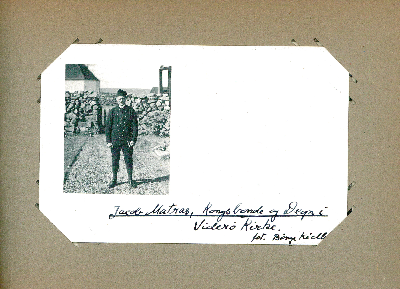 Jacob Matras, Kongsbonde og Degn i
Viderö Kirke.
fot.